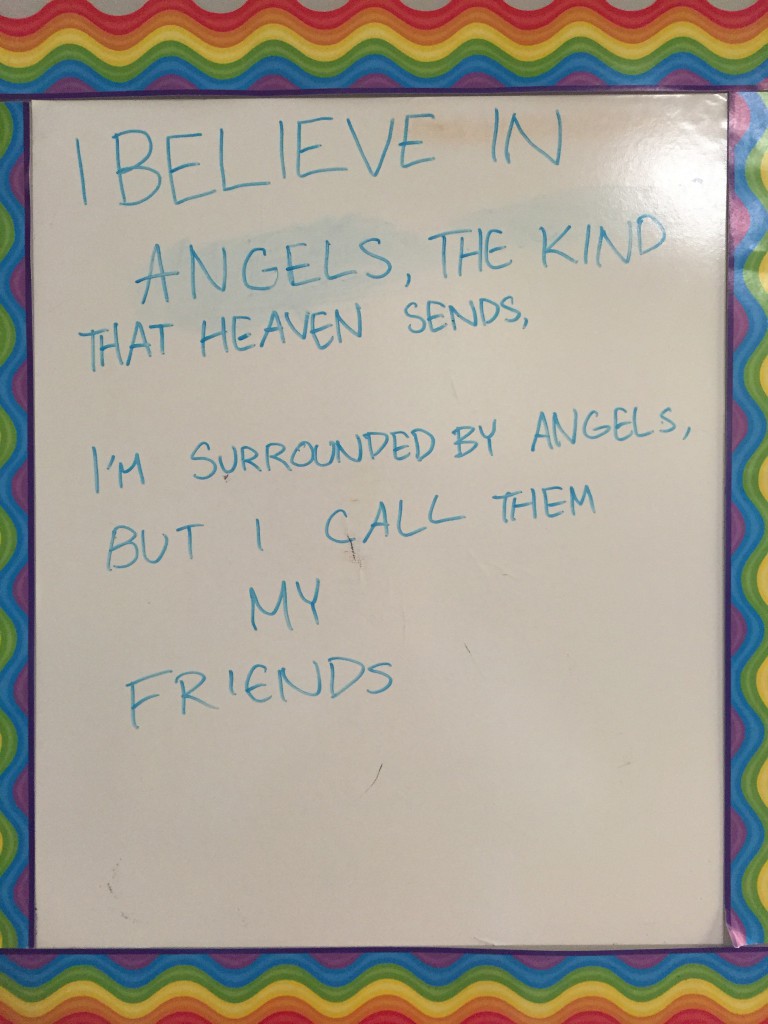 I BELIEVE IN
ANGELS, THE KIND
THAT HEAVEN SENDS,
I'M SURROUNDED BY ANGELS,
BUT I CALL THEM
MY
FRIENDS